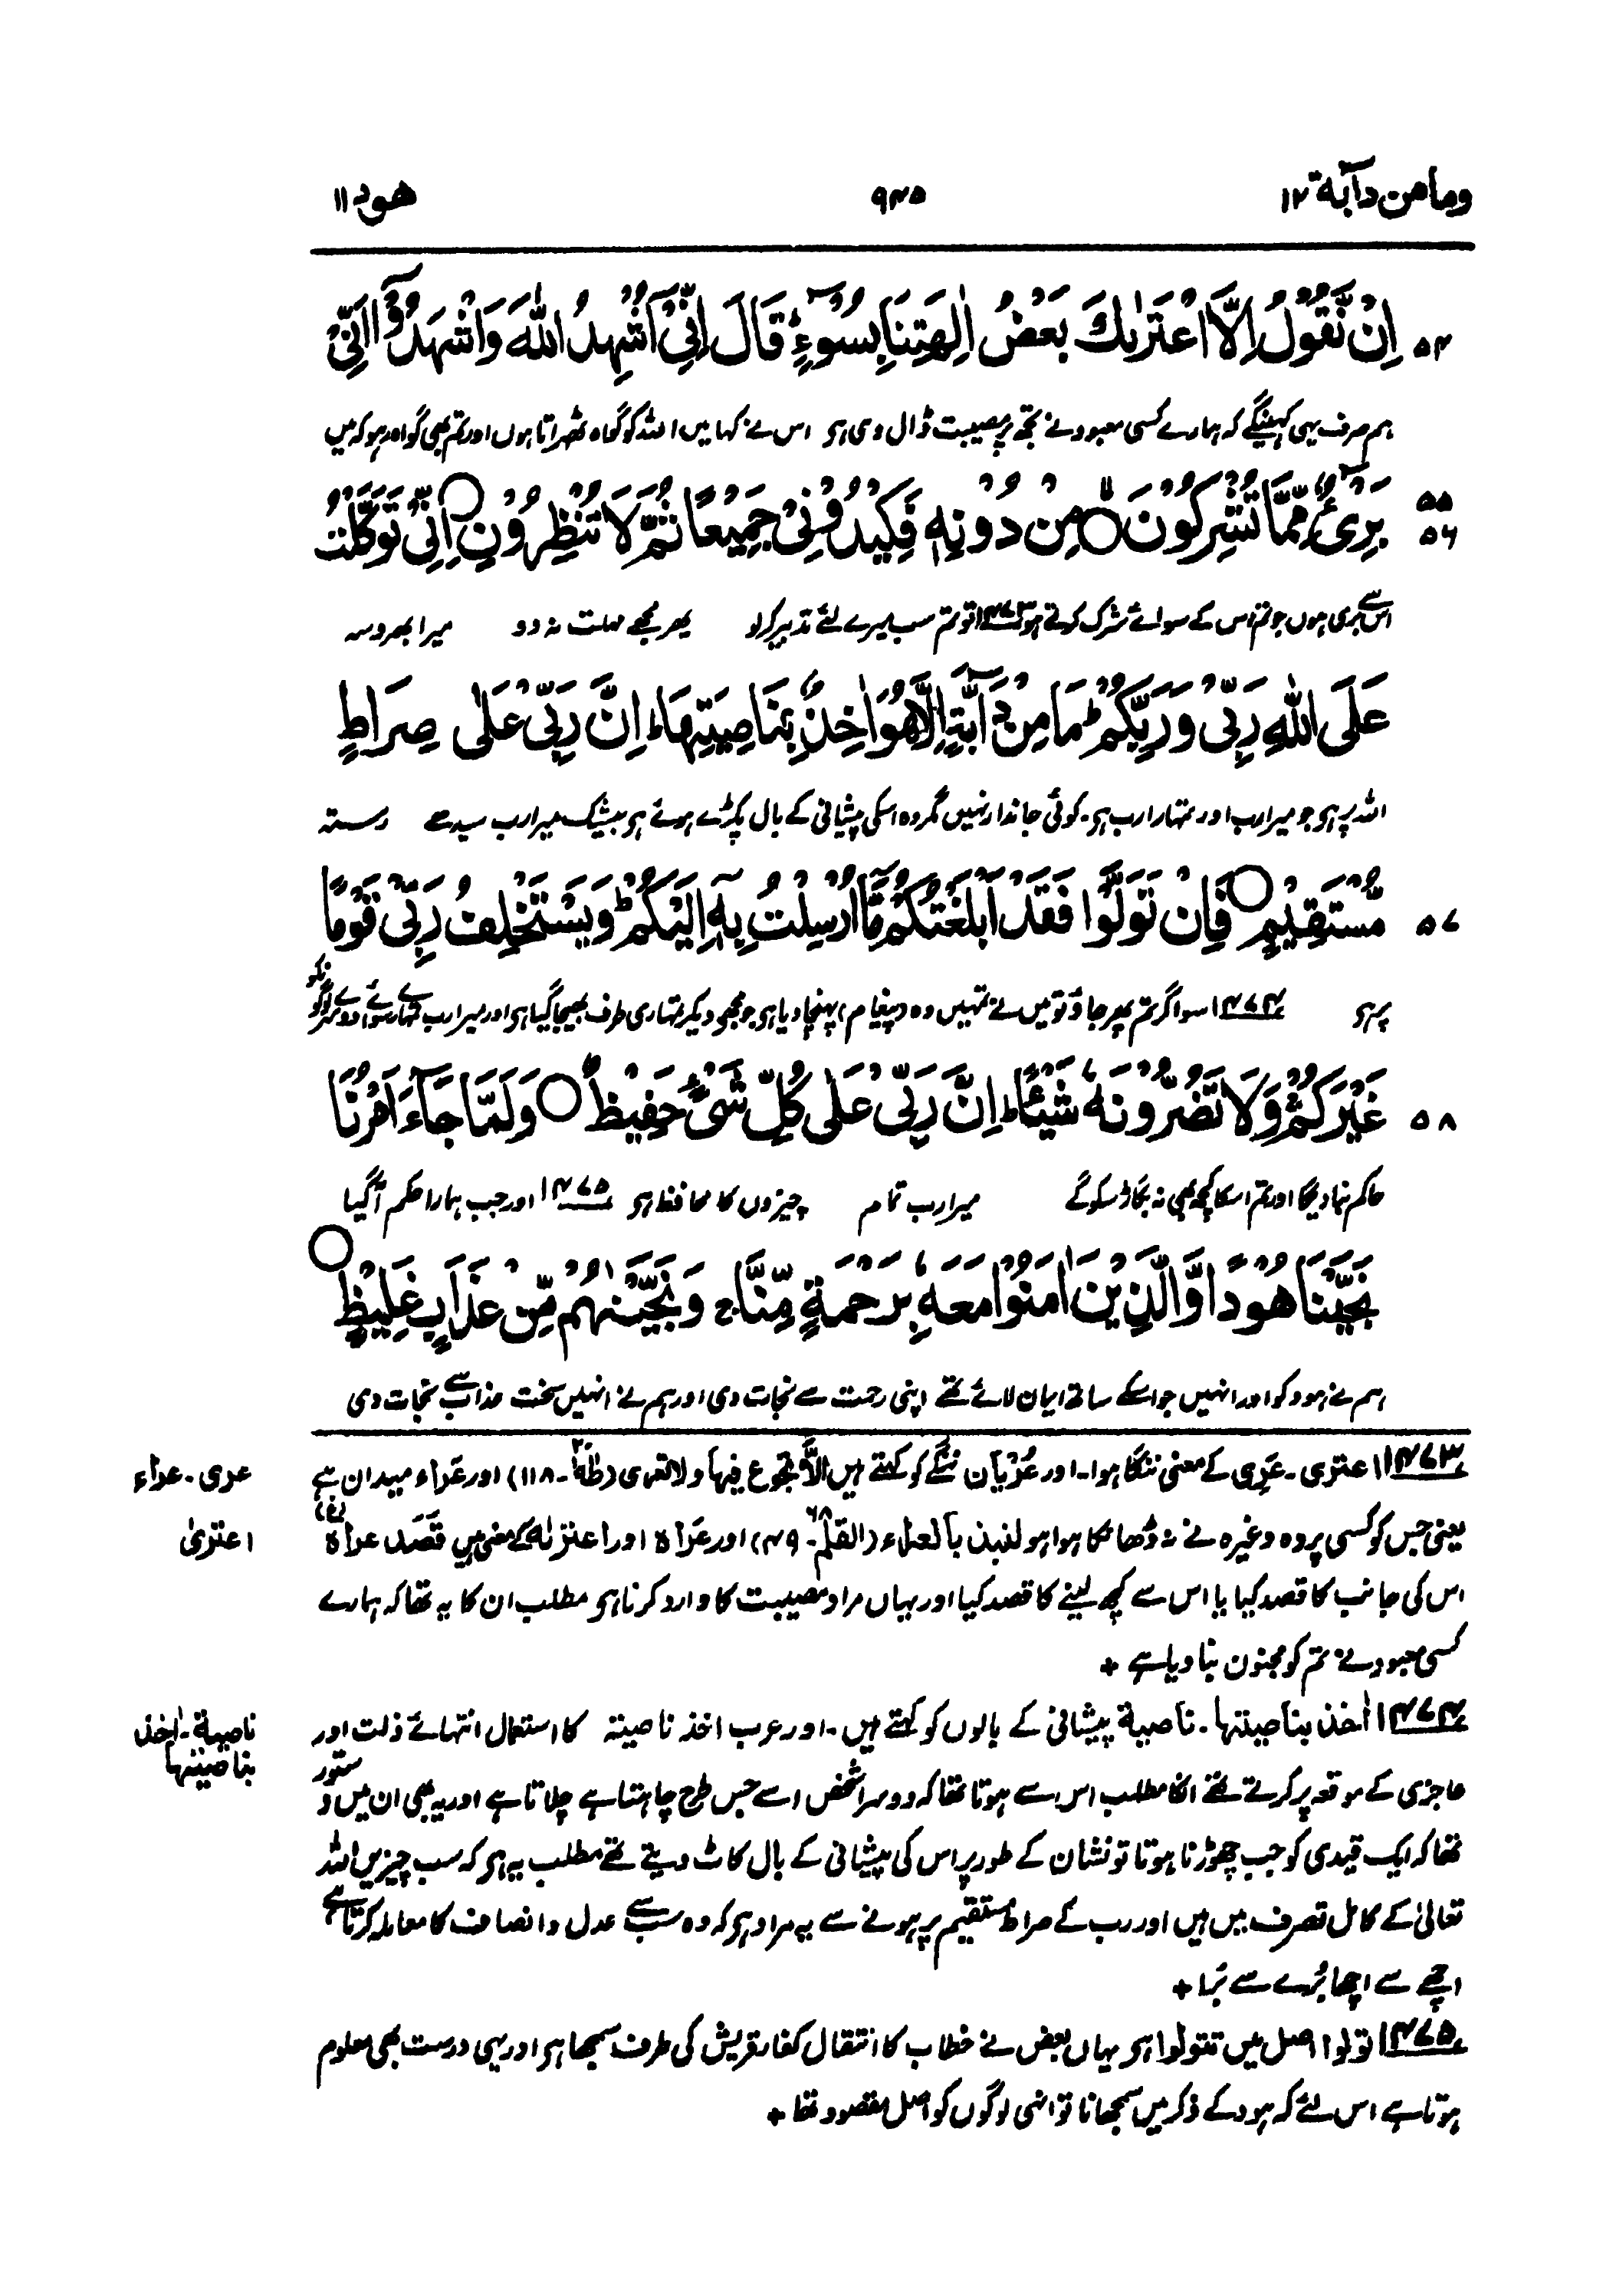 ومامن دآبة ۱۲ ۹۴۵ هود ۱۱
۵۴ اِنْ نَّقُوْلُ اِلَّا اعْتَرٰىكَ بَعْضُ اٰلِهَتِنَا بِسُوْٓءٍ ؕ قَالَ اِنِّیْۤ اُشْهِدُ اللّٰهَ وَاشْهَدُوْۤا اَنِّیْ
ہم صرف یہی کہینگے کہ ہمارے کسی معبود نے تجھ پر مصیبت ڈال دی ہو اس نے کہا میں اللہ کو گواہ ٹھہراتا ہوں اور تم بھی گواہ رہو کہ میں
۵۵ ۵۶ بَرِیْٓءٌ مِّمَّا تُشْرِكُوْنَ ۙ مِنْ دُوْنِهٖ فَكِیْدُوْنِیْ جَمِیْعًا ثُمَّ لَا تُنْظِرُوْنِ اِنِّیْ تَوَكَّلْتُ
اس سے بری ہوں جو تم اس کے سوائے شرک کرتے ہو ۱۴۷۳ تو تم سب میرے لئے تدبیر کرلو پھر مجھے مہلت نہ دو میرا بھروسہ
عَلَی اللّٰهِ رَبِّیْ وَرَبِّكُمْ ؕ مَا مِنْ دَآبَّةٍ اِلَّا هُوَ اٰخِذٌۢ بِنَاصِیَتِهَا ؕ اِنَّ رَبِّیْ عَلٰی صِرَاطٍ
اللہ پر ہو جو میرا رب اور تمہارا رب ہو۔ کوئی جاندار نہیں مگر وہ اسکی پیشانی کے بال پکڑے ہوئے ہو بیشک میرا رب سیدھے رستہ
۵۷ مُّسْتَقِیْمٍ فَاِنْ تَوَلَّوْا فَقَدْ اَبْلَغْتُكُمْ مَّاۤ اُرْسِلْتُ بِهٖۤ اِلَیْكُمْ ؕ وَیَسْتَخْلِفُ رَبِّیْ قَوْمًا
پر ہو ۱۴۷۴ سو اگر تم پھر جاؤ تو میں نے تمہیں وہ (پیغام) پہنچا دیا ہو جو مجھے دیکر تمہاری طرف بھیجا گیا ہو اور میرا رب تمہارے سوائے دوسرے لوگونکو
۵۸ غَیْرَكُمْ ۚ وَلَا تَضُرُّوْنَهٗ شَیْئًا ؕ اِنَّ رَبِّیْ عَلٰی كُلِّ شَیْءٍ حَفِیْظٌ وَلَمَّا جَآءَ اَمْرُنَا
حاکم بنا دیگا اور تم اسکا کچھ بھی نہ بگاڑ سکو گے میرا رب تمام چیزوں کا محافظ ہو ۱۴۷۵ اور جب ہمارا حکم آگیا
نَجَّیْنَا هُوْدًا وَّالَّذِیْنَ اٰمَنُوْا مَعَهٗ بِرَحْمَةٍ مِّنَّا ۚ وَنَجَّیْنٰهُمْ مِّنْ عَذَابٍ غَلِیْظٍ
ہم نے ہود کو اور انہیں جو اسکے ساتھ ایمان لائے تھے اپنی رحمت سے نجات دی اور ہم نے انہیں سخت عذاب سے نجات دی
۱۴۷۳ اعتری۔ عَرِی کے معنی ننگا ہوا۔ اور عُرْیَان ننگے کو کہتے ہیں الَّا تجوع فیہا ولا تعری (طٰہٰ ۲۰۔۱۱۸) اور عَرَاء میدان ہے (غ)
عری۔ عراء
یعنی جس کو کسی پردہ وغیرہ نے نہ ڈھانکا ہوا ہو لنبذ بالعراء (القلم ۶۸۔۴۹) اور عَرَاہ اور اعترٰہ کے معنی ہیں قَصَدَ عراہ
اعتریٰ
اس کی جانب کا قصد کیا یا اس سے کچھ لینے کا قصد کیا اور یہاں مراد مصیبت کا وارد کرنا ہو مطلب ان کا یہ تھا کہ ہمارے
کسی معبود نے تم کو مجنون بنا دیا ہے +
۱۴۷۴ اٰخذ بناصیتہا۔ ناصیة پیشانی کے بالوں کو کہتے ہیں۔ اور عرب اخذ ناصیتہ کا استعمال انتہائے ذلت اور
ناصیة۔ اٰخذ بناصیتہا
عاجزی کے موقعہ پر کرتے تھے انکا مطلب اس سے ہوتا تھا کہ دوسرا شخص اسے جس طرح چاہتا ہے چلاتا ہے اور یہ بھی ان میں دستور
تھا کہ ایک قیدی کو جب چھوڑنا ہوتا تو نشان کے طور پر اس کی پیشانی کے بال کاٹ دیتے تھے مطلب یہ ہو کہ سب چیزیں اللہ
تعالیٰ کے کامل تصرف میں ہیں اور رب کے صراط مستقیم پر ہونے سے یہ مراد ہو کہ وہ سب سے عدل و انصاف کا معاملہ کرتا ہے
اچھے سے اچھا بُرے سے بُرا +
۱۴۷۵ تولوا اصل میں تتولوا ہو یہاں بعض نے خطاب کا انتقال کفار قریش کی طرف سمجھا ہو اور یہی درست بھی معلوم
ہوتا ہے اس لئے کہ ہود کے ذکر میں سمجھانا تو انہی لوگوں کو اصل مقصود تھا +